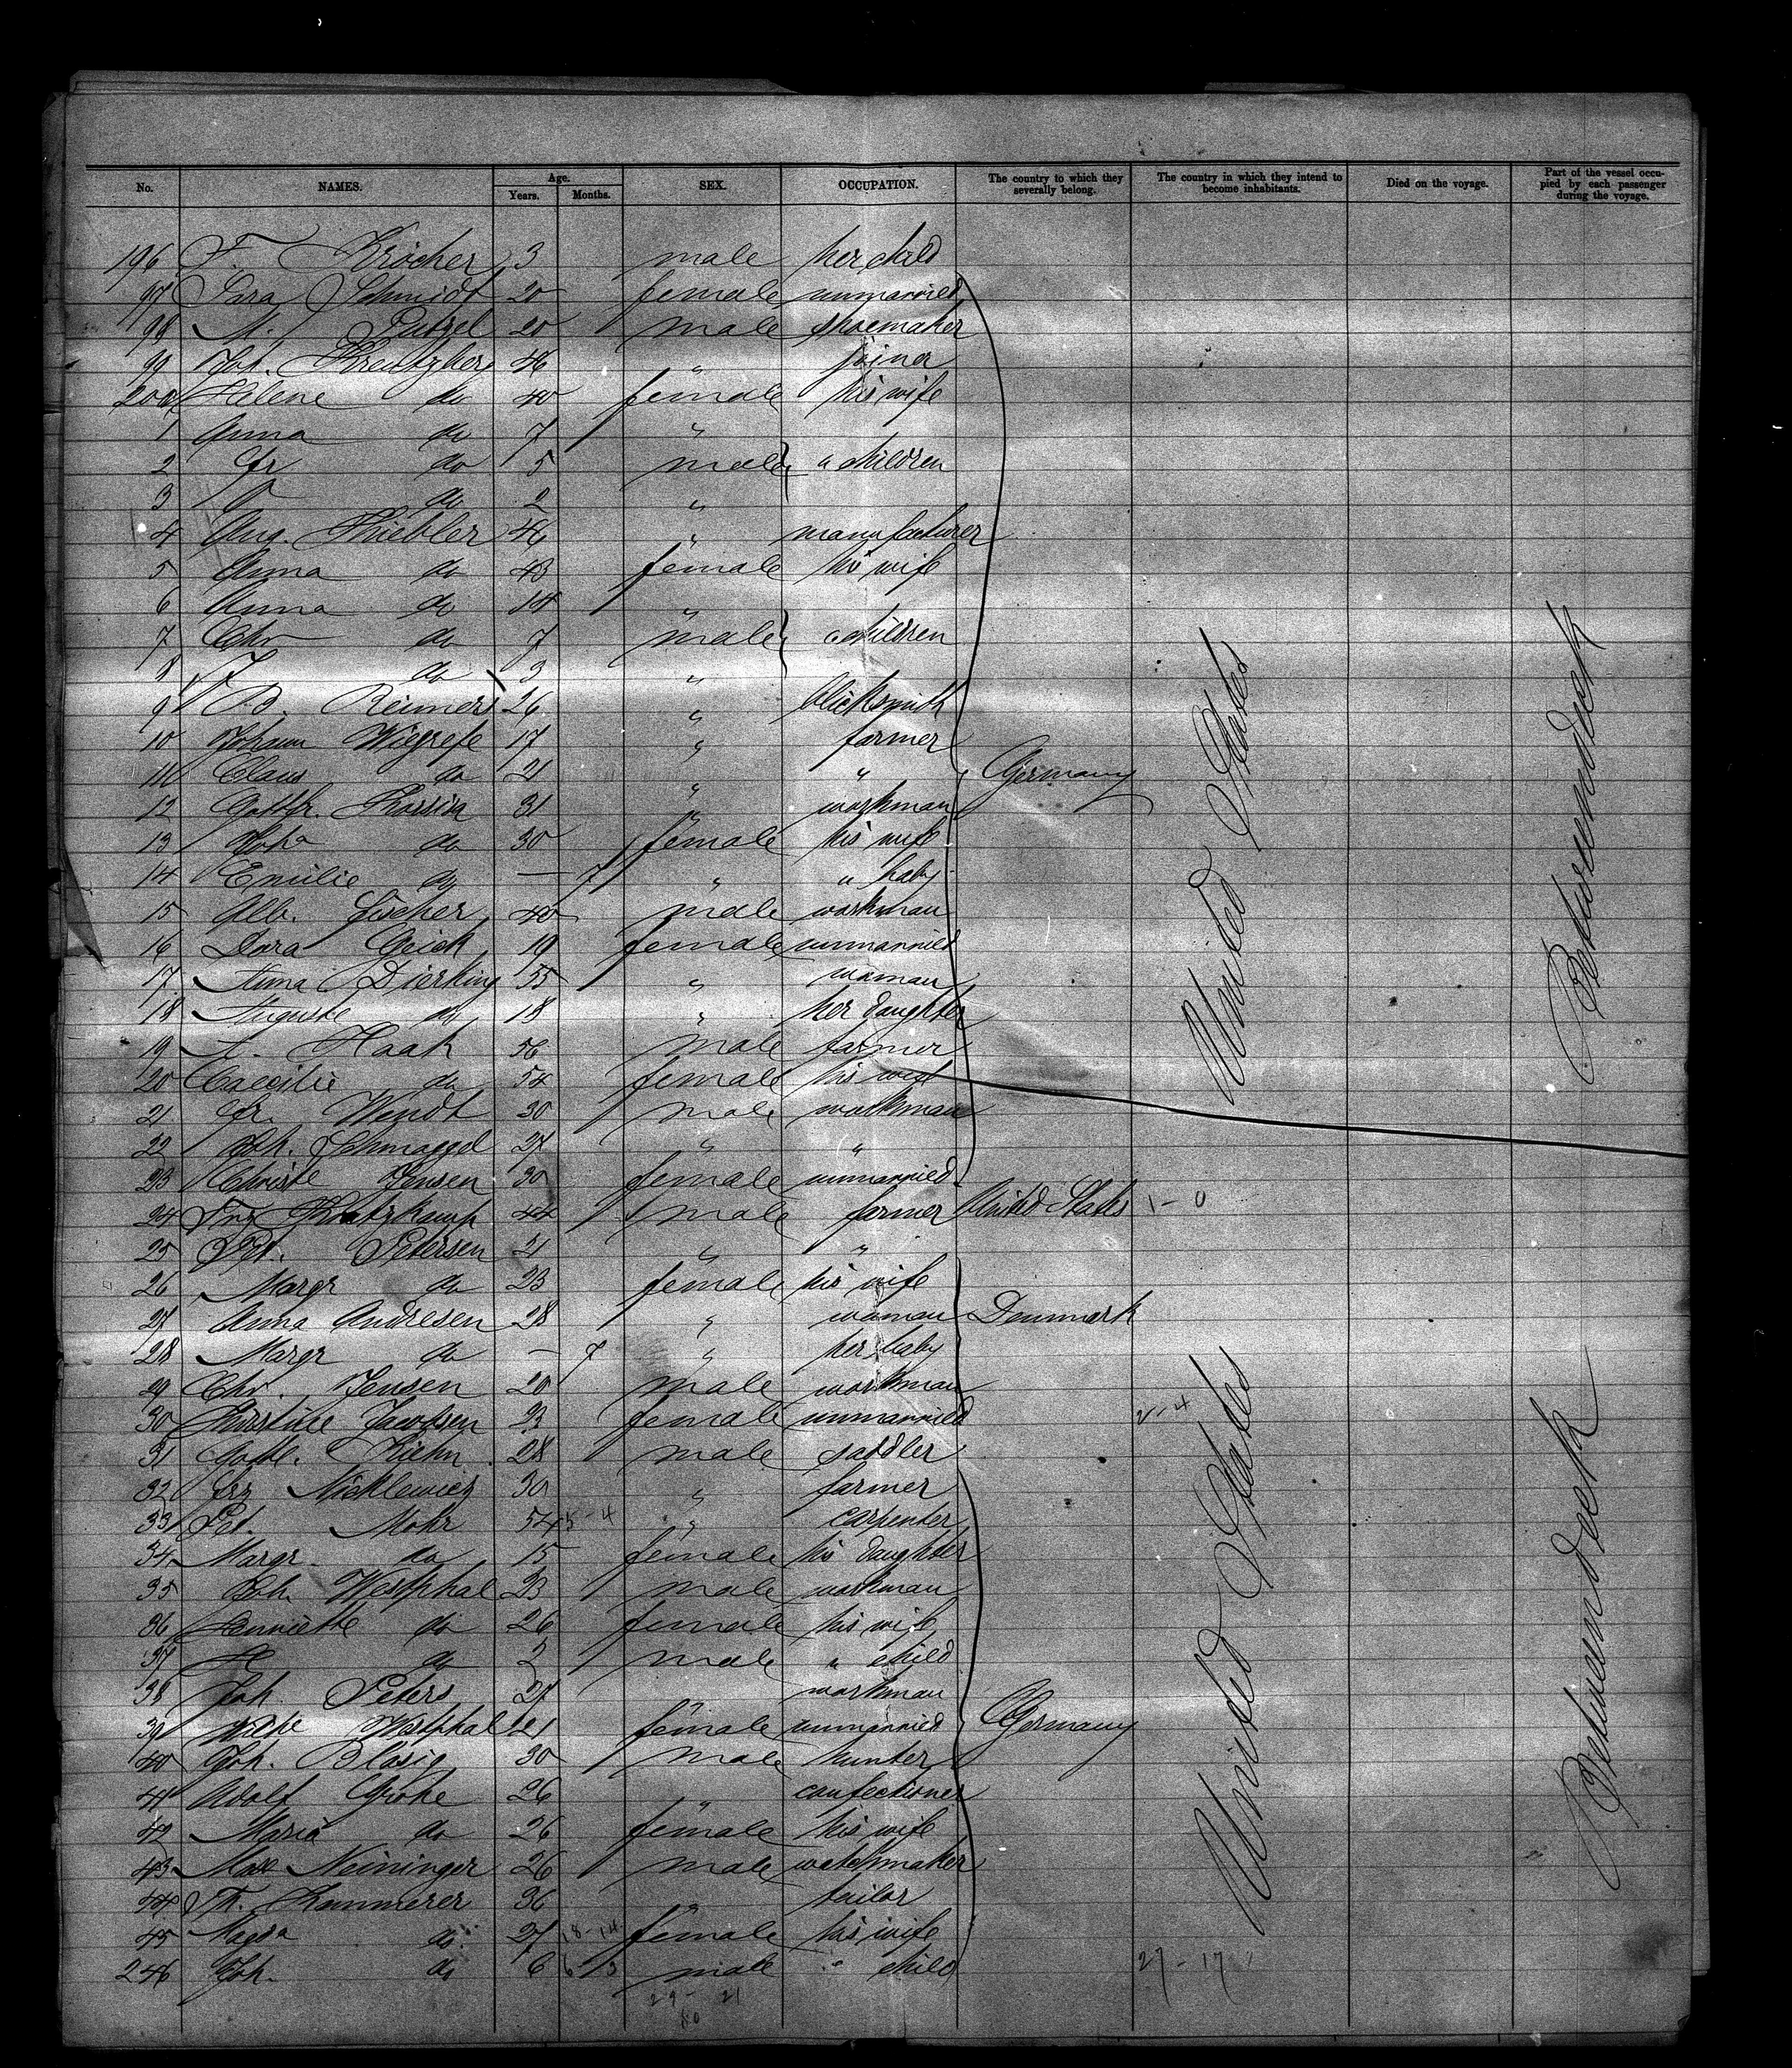 No. NAMES. Age. Years. Months. SEX. OCCUPATION. The country to which they severally belong. The country in which they intend to become inhabitants. Died on the voyage. Part of the vessel occupied by each passenger during the voyage.
196 F. Kröcher 3 male her child
97 Sara Schmidt 20 female unmarried
98 M. 20 male shoemaker
99 Joh. Kreutzberg 46 " joiner
200 Helene do 40 female his wife
1 Anna do 7 "
2 Fr do 5 male " children
3 do 2 "
4 Aug. 46 " manufacturer
5 Anna do 43 female his wife
6 Anna do 14 "
7 Chr do 7 male " children
8 do 3 "
9 Reimers 26 " blicksmith
10 Johann Wiegrefe 17 " farmer
11 Claus do 21 " " Germany
12 Gottfr. 31 " workman
13 Joha do 30 female his wife
14 Emilie do — 7 " " baby
15 Alb. Fischer 40 male workman
16 Dora Geick 19 female unmarried
17 Anna Dierking 55 " woman
18 Auguste do 18 " her daughter
19 Haak 56 male farmer
20 Caecilie do 54 female his wife
21 Fr. Wendt 30 male workman
22 Joh. 27 " "
23 Christe Jensen 30 female unmarried
24 44 male farmer United States 1 - 0
25 Pet. Petersen 21 " "
26 Margr do 23 female his wife
27 Anna Andresen 28 " woman Denmark
28 Margr do — 7 " her baby
29 Chr. Jensen 20 male workman
30 Christine Jacobsen 23 female unmarried 2-4
31 Gottl. Kiehn 28 male saddler
32 Frz Nicklewicz 30 " farmer
33 Pet. Mohr 54 5-4 " carpenter
34 Margr. do 15 female his daughter
35 Joh. Westphal 23 male workman
36 Henriette do 26 female his wife
37 H do 2 male " child
38 Joh. Peters 27 workman
39 Westphal 21 female unmarried Germany
40 Joh. Blasig 30 male hunter
41 Adolf Grohe 26 " confectioner
42 Maria do 26 female his wife
43 Max Neininger 26 male watchmaker
44 Kammerer 36 " tailor
45 Magda do 27 18-14 female his wife
246 Joh. do 6 6 3 male " child 27-17
29- 21
80
United States
Betweendeck
United States
Betweendeck